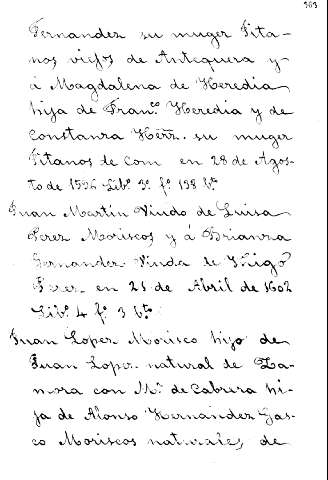 369
Fernandez su muger Jita-
nos viejos de Antequera y
á Magdalena de Heredia
hija de Fran.co Heredia y de
Constanza Herrz. su muger
Jitanos de Com en 28 de Agos-
to de 1596 Lib.o 3.o f.o 138 b.to
Juan Martin Viudo de Luisa
Perez Moriscos y á Brianza
Fernandez Viuda de Yñigo
Perez en 21 de Abril de 1602
Lib.o 4 f.o 3 b.to
Juan Lopez Morisco hijo de
Juan Lopez natural de Za-
mora con M.a de Cabrera hi-
ja de Alonso Hernandez Gas-
co Moriscos naturales de